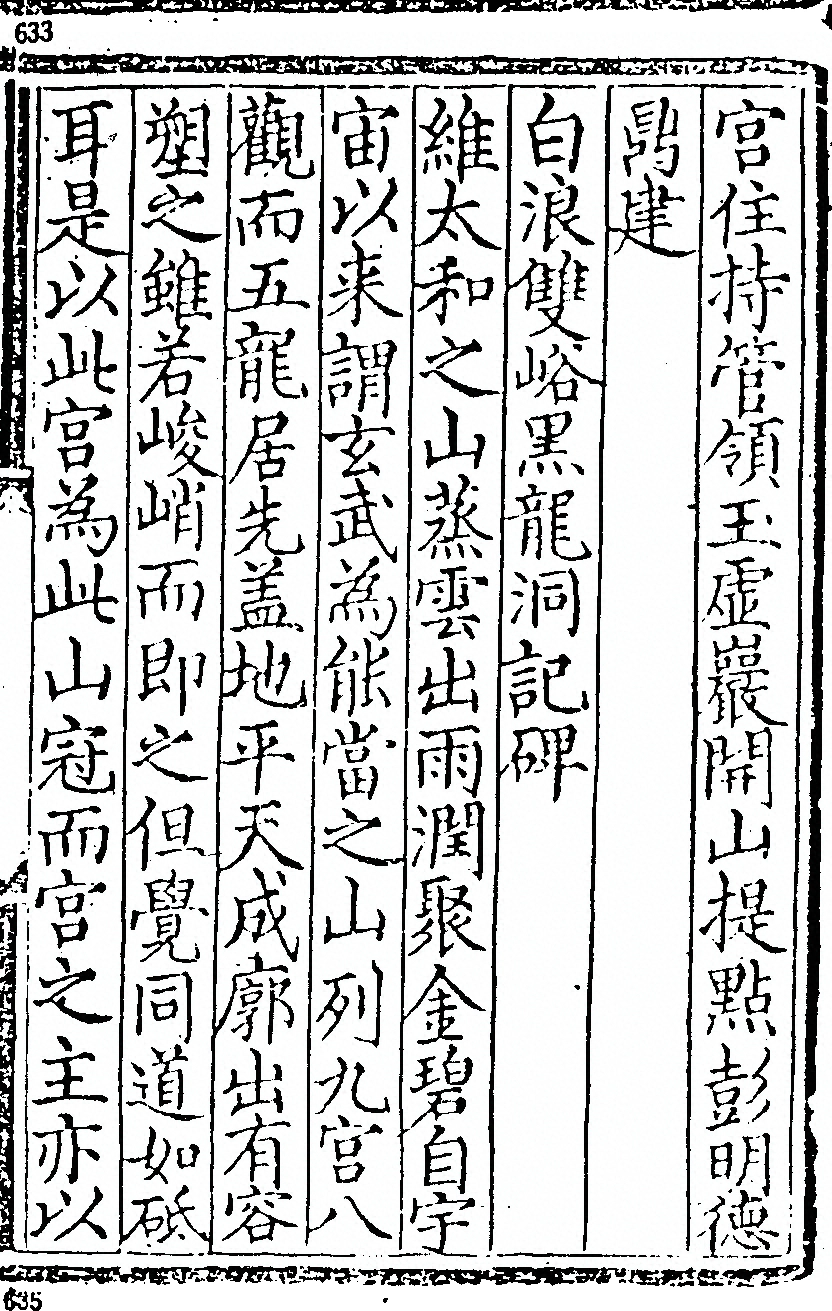 633
宫住持管領玉虚巖開山提點彭明德
鼎建
白浪雙峪黑龍洞記碑
維太和之山蒸雲出雨潤聚金碧自宇
宙以来謂玄武為能當之山列九宫八
觀而五龍居先盖地平天成廓出有容
塑之雖若峻峭而即之但覺同道如砥
耳是以此宫為此山冠而宫之主亦以
635